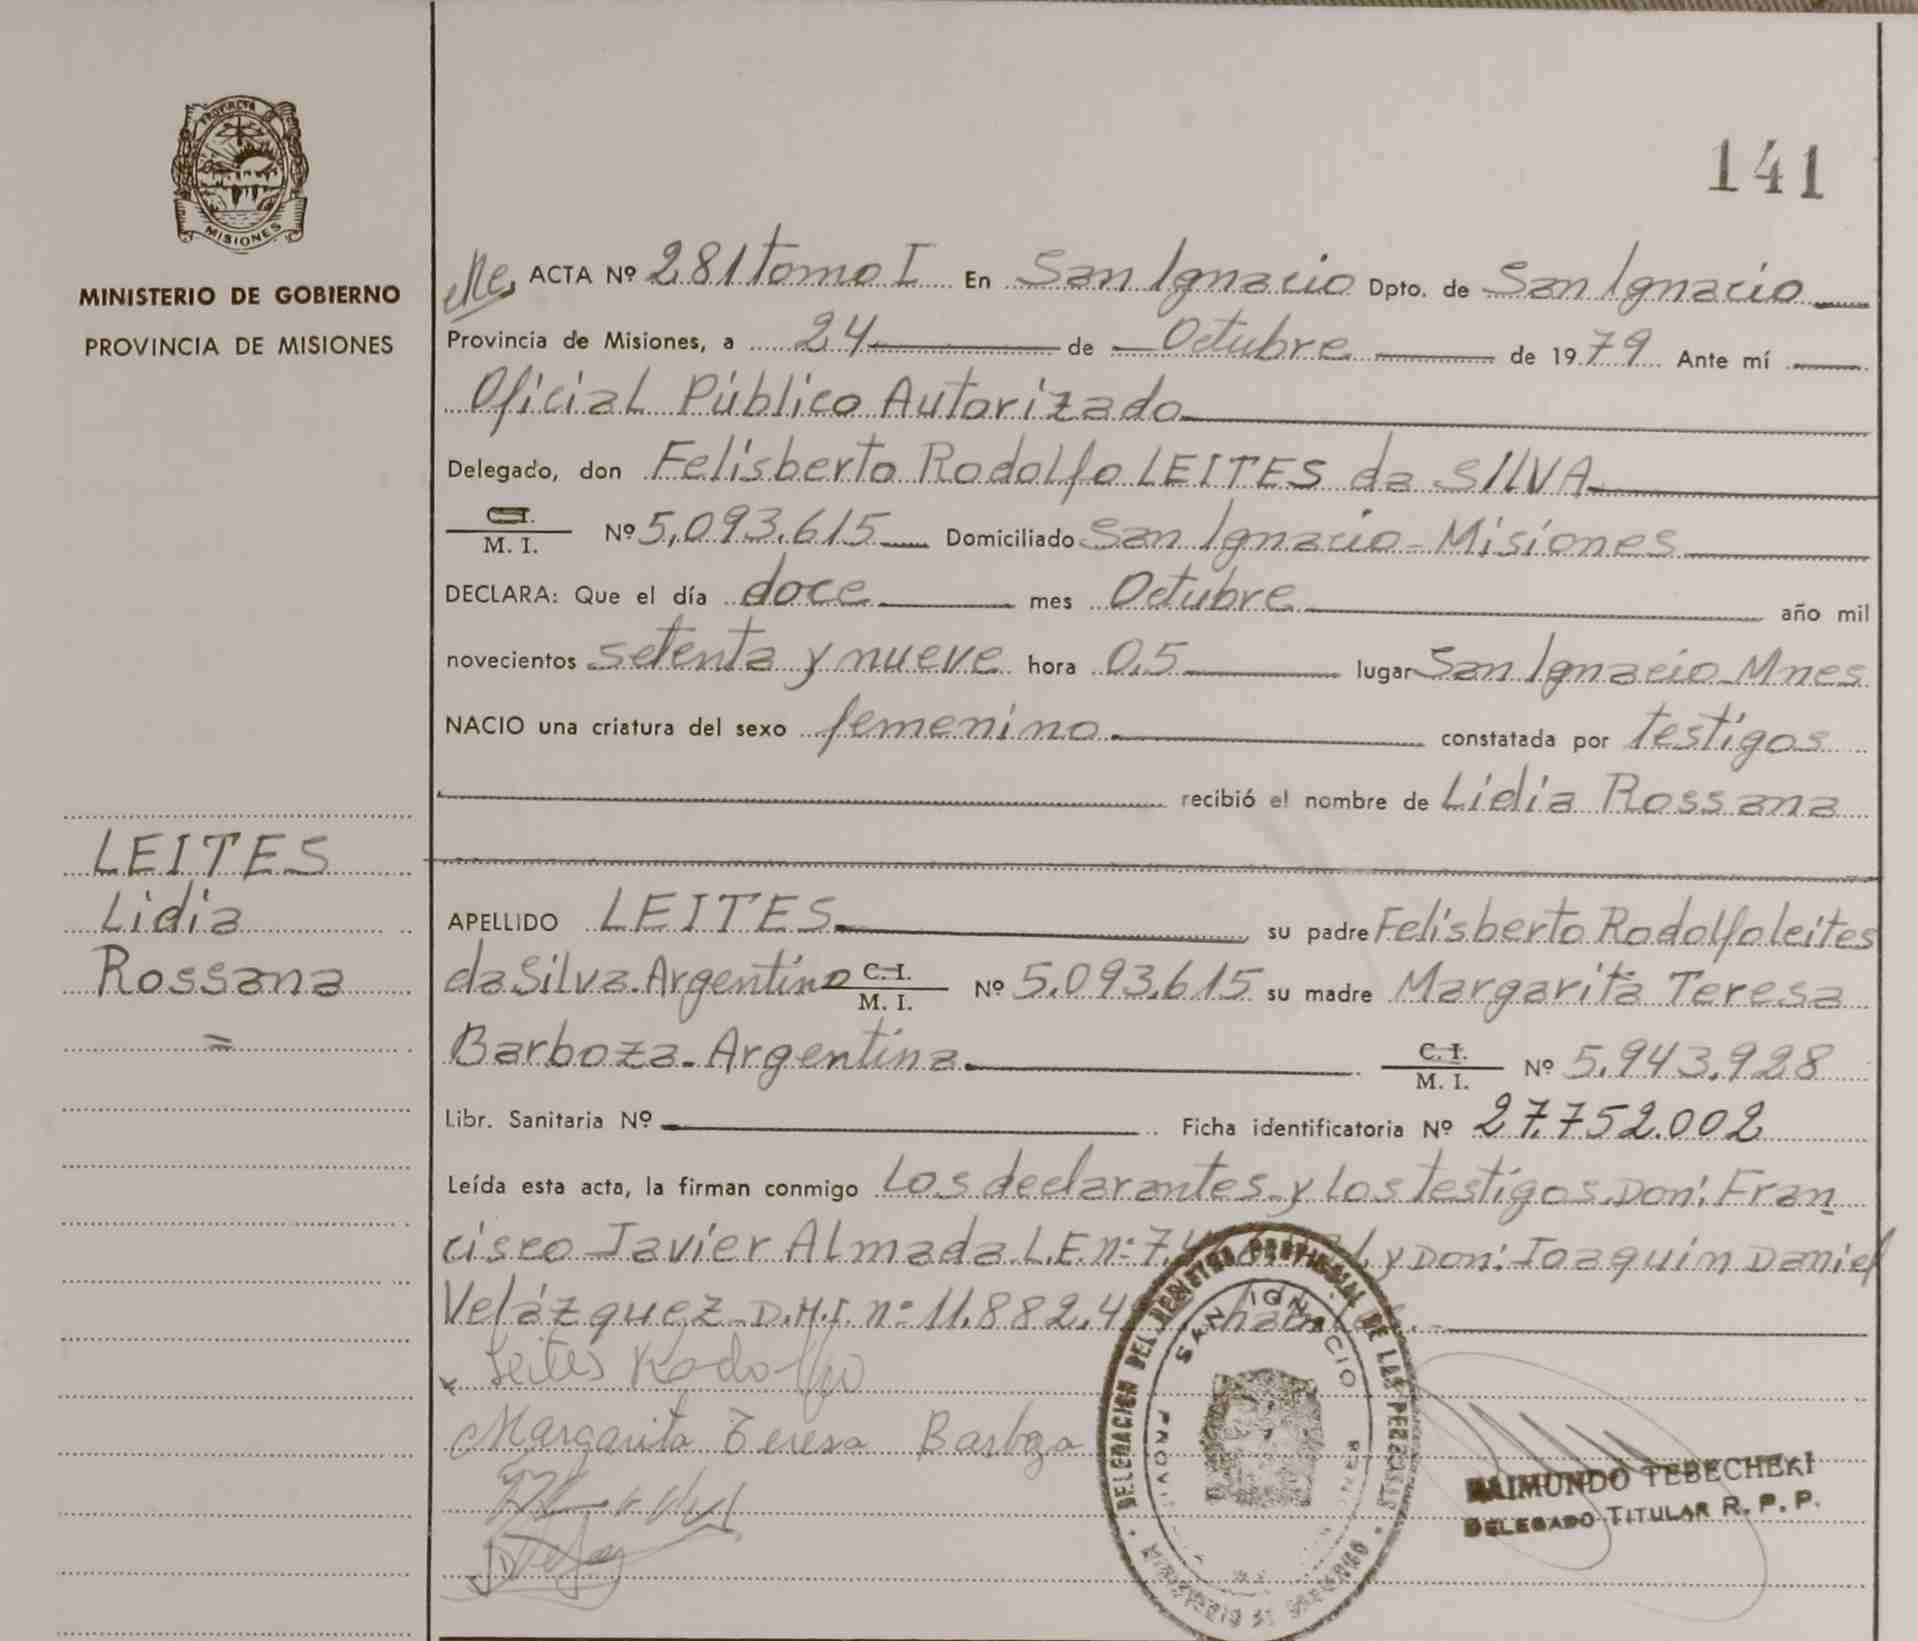 PROVINCIA
MISIONES
MINISTERIO DE GOBIERNO
PROVINCIA DE MISIONES
LEITES
Lidia
Rossana
=
141
ACTA Nº 281 tomo I En San Ignacio Dpto. de San Ignacio
Provincia de Misiones, a 24 de Octubre de 1979 Ante mí
Oficial Público Autorizado
Delegado, don Felisberto Rodolfo LEITES da SILVA
C.I. / M. I. Nº 5,093.615 Domiciliado San Ignacio - Misiones
DECLARA: Que el día doce mes Octubre año mil
novecientos setenta y nueve hora 0.5 lugar San Ignacio Mnes
NACIO una criatura del sexo femenino constatada por testigos
recibió el nombre de Lidia Rossana
APELLIDO LEITES su padre Felisberto Rodolfo leites
da Silva. Argentino C.I. / M. I. Nº 5.093.615 su madre Margarita Teresa
Barboza. Argentina C.I. / M. I. Nº 5.943.928
Libr. Sanitaria Nº Ficha identificatoria Nº 27.752.002
Leída esta acta, la firman conmigo Los declarantes y Los testigos Don: Fran
cisco Javier Almada L.E. n: 7.4 y Don: Joaquin Daniel
Velázquez D.N.I. nº 11.882.4
Leites Rodolfo
Margarita Teresa Barboza
DELEGACION DEL REGISTRO PROVINCIAL DE LAS PERSONAS
SAN IGNACIO
MINISTERIO DE GOBIERNO
RAIMUNDO TEBECHEKI
DELEGADO TITULAR R. P. P.